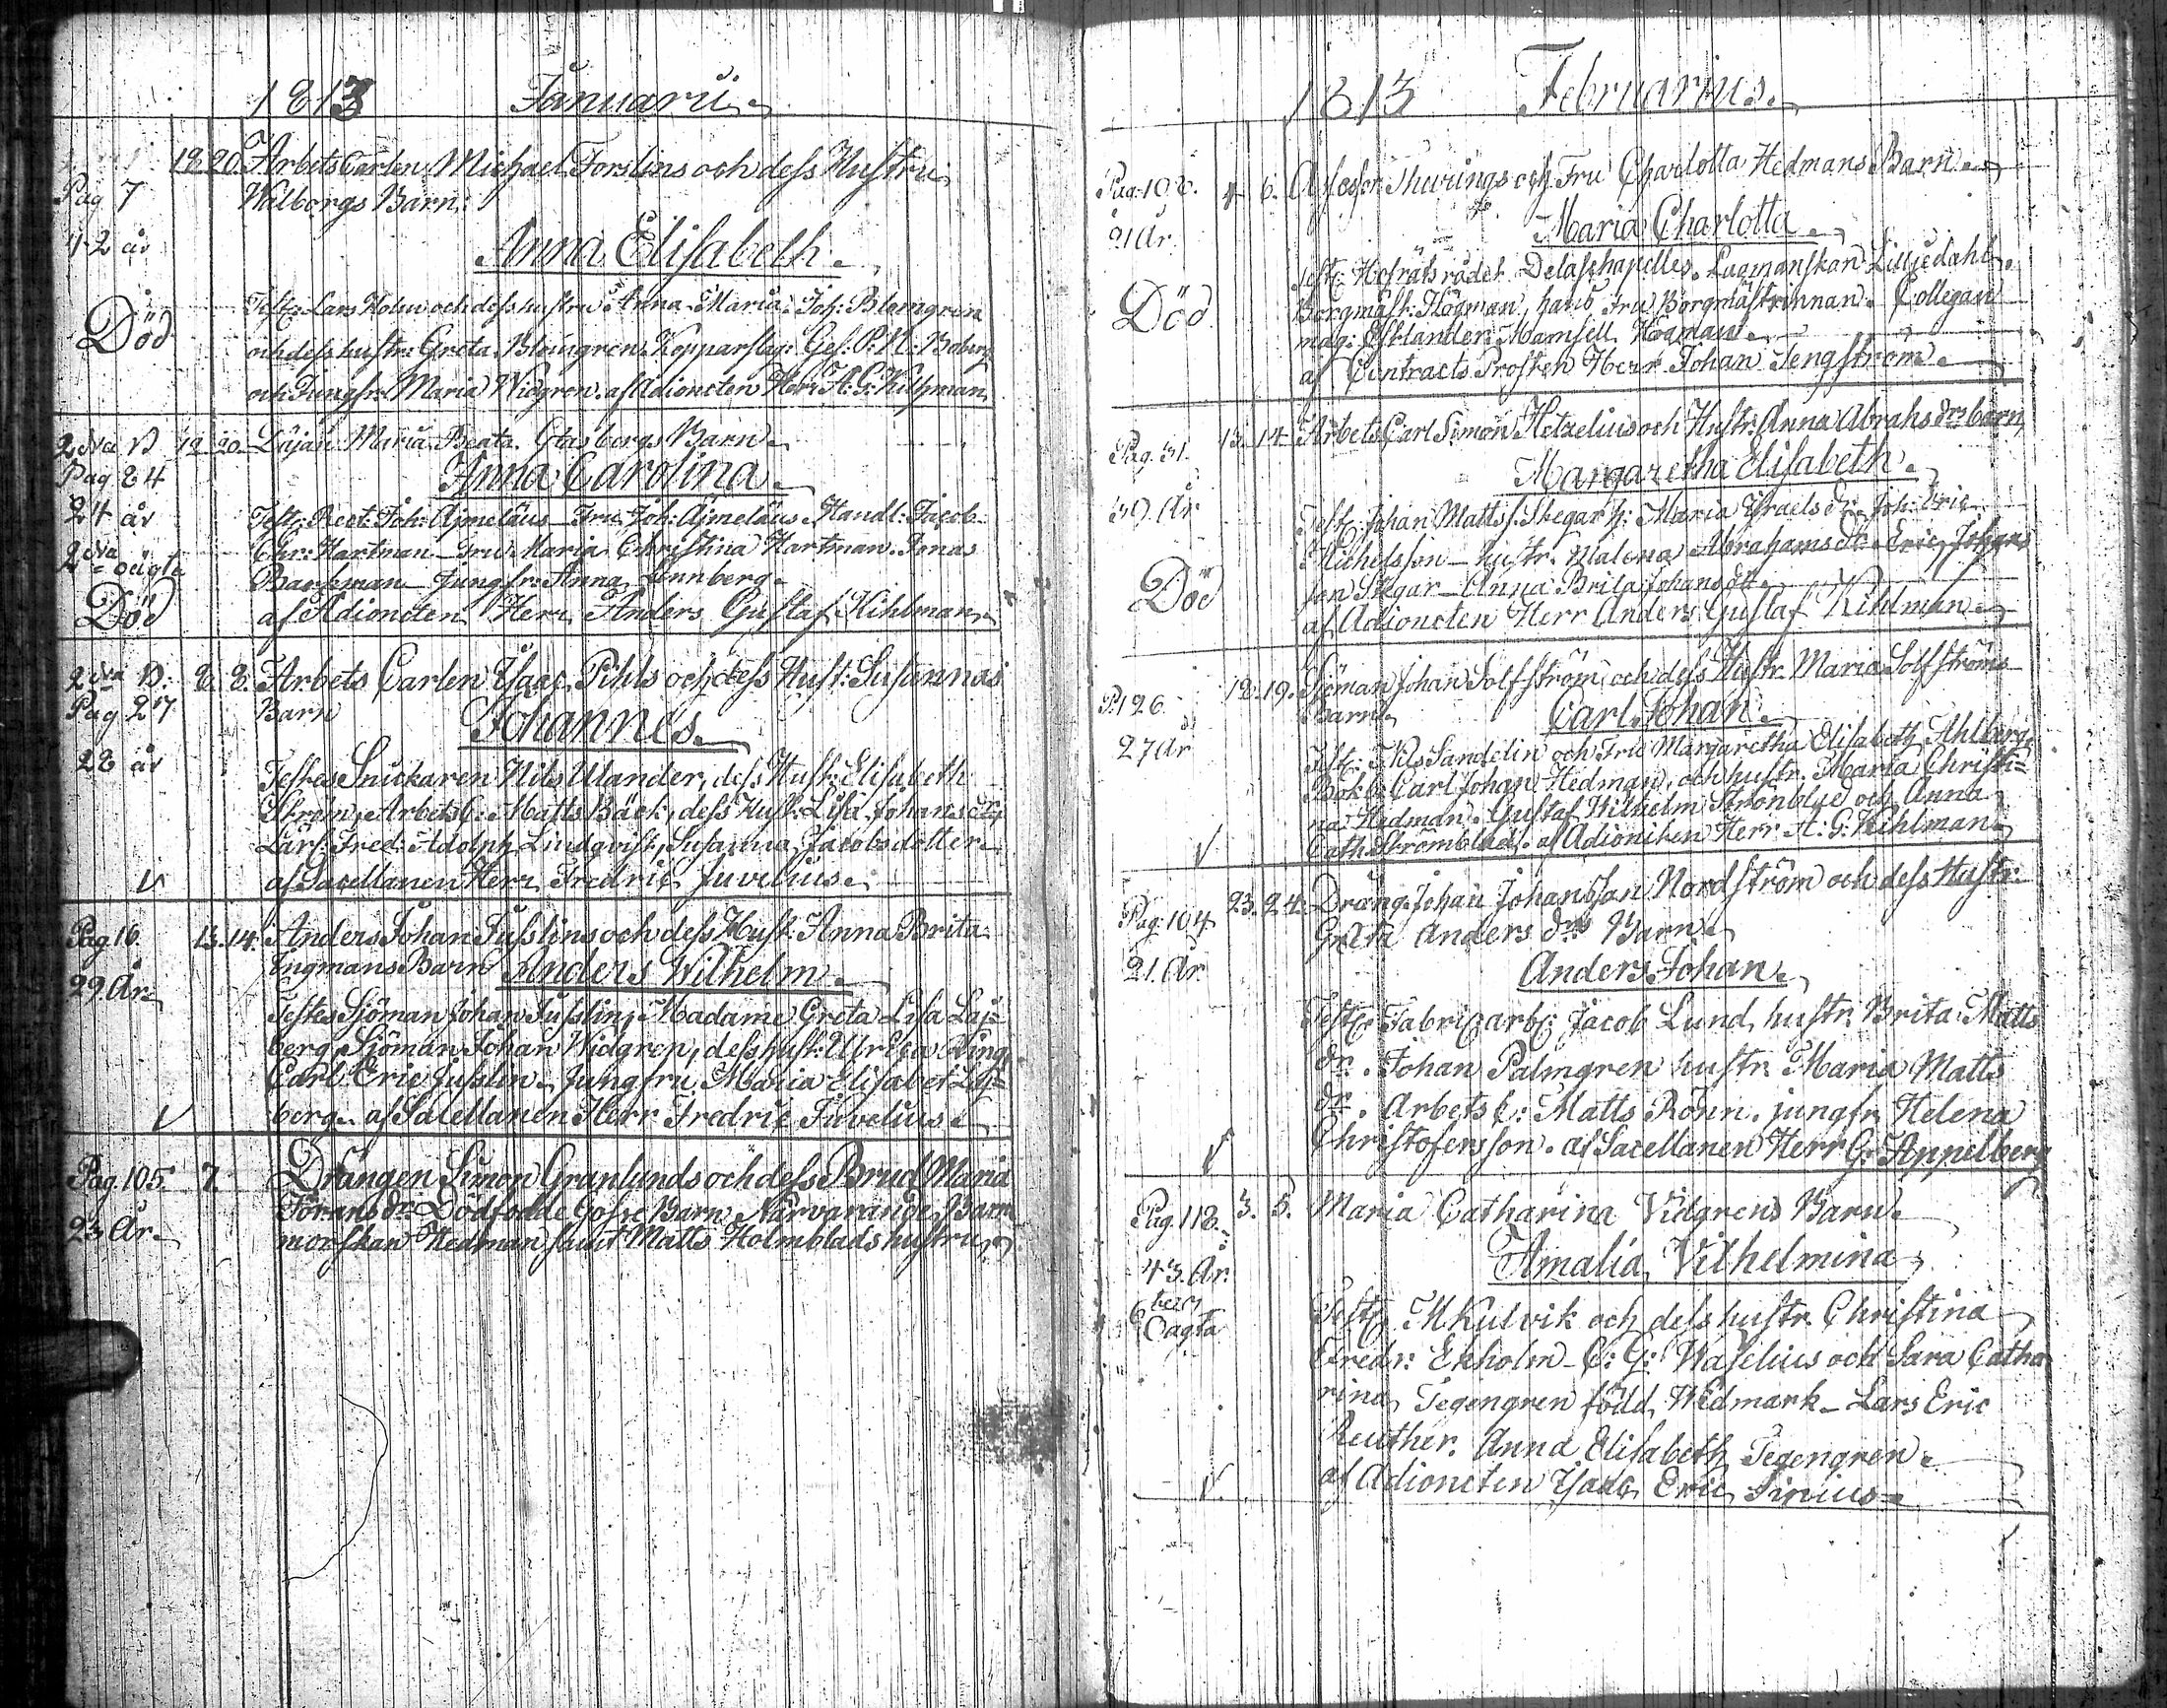 1813 Januarii
18 20. Arbets Carlen Michael Forslins och dess Hustru
Pag 7 Walborgs Barn:
42 år Anna Elisabeth.
Test: Lars Holm och dess hustru Anna Maria. Joh: Blomgren
Död och dess hustr: Greta Blomgren. Kopparslag: Ges: P: N: Boberg
och Jungfr: Maria Widgren. af Adioncten Herr A: G: Kihlman
2dra D 19 20. Pigan Maria Beata Stasbergs Barn
Pag. 84 Anna Carolina.
24 år Test: Rect: Joh: Ajmelæus Fru Joh: Ajmelæus. Handl: Jacob
2dra oägta Chr: Hartman Fru Maria Christina Hartman. Jonas
Barkman Jungfr: Anna Lennberg.
Död af Adioncten Herr Anders Gustaf Kihlman
2dra D. 8. 8. Arbets Carlen Isaac Pihls och dess Hust: Susannas
Pag 27 Barn Johannes
28 år Testes Snickaren Nils Ulander, dess Hust: Elisabeth
Ström, Arbets C: Matts Bäck, dess Hust: Lisa Johans dr,
Lärl: Fred: Adolph Lindqvist, Susanna Jacobsdotter.
af Sacellanen Herr Fredric Juvelius.
Pag. 16. 13. 14. Anders Johan Jusslins och dess Hust: Anna Brita
Ingmans Barn Anders Wilhelm.
29 År Testes Sjöman Johan Jusslin, Madame Greta Lisa Laj=
berg, Sjöman Johan Widgren, dess hust: Ulrica Ring,
Carl Eric Jusslin. Jungfru Maria Elisabet Laj=
berg. af Sacellanen Herr Fredric Juvelius.
Pag. 105. 7. Drängen Simon Granlunds och dess Brud Maria
Görans dr: Dödfödde Gosse Barn. Närvarande, Barn
23 År morskan Hedman samt Matts Holmblads hustru.
1813 Februarius.
Pag. 108. 4 6. Assessor Thurings och Fru Charlotta Hedmans Barn.
21 År. Maria Charlotta.
Test: Hofrätsrådet Delaschapelles. Lagmanskan Lilljedahl.
Död Borgmäst: Högman, hans Fru Borgmästrinnan. Collegan
mag: Estlander. Mamsell Högman.
af Contracts Prosten Herr Johan Tengström.
Pag. 31. 13. 14. Arbets Carl Simon Hetzelius och Hustr: Anna Abrahs drs barn
Margaretha Elisabeth.
39. År Test: Johan Matts s: Skegar h: Maria Israels dr. Joh: Eric
Michelsson hustr. Malena Abrahams dr. Eric Johans
Död son Skegar Anna Brita Johans dr.
af Adioncten Herr Anders Gustaf Kihlman.
P. 126. 18. 19. Sjöman Johan Solfström och dess Hustr. Maria Solfströms
Barn Carl Johan.
27 År Test: Nils Sandelin och Fru Margaretha Elisabeth Ahlberg.
Bokb: Carl Johan Hedman, och hustr. Maria Christi=
na Hedman. Gustaf Wilhelm Strömblad och Anna
Cath. Strömblad. af Adioncten Herr A: G: Kihlman
Pag. 104 23. 24. Dräng. Johan Johansson Nordström och dess Hustr:
Greta Anders drs Barn
21. År Anders Johan.
Test: Fabricarb: Jacob Lund, hustr. Brita Matts
dr. Johan Palmgren hustr. Maria Matts
dr. Arbets C: Matts Rönn. jungfr. Helena
Christofersson. af Sacellanen Herr G: Appelberg
Pag. 118. 3. 5. Maria Catharina Vidgrens Barn.
43. År. Amalia Vilhelmina
6 ters Oägta Test: M Kulvik och dess hustr. Christina
Fredr: Ekholm C: G: Waselius och Sara Catha
rina Tegengren född Wedmark Lars Eric
Reuther. Anna Elisabeth Tegengren.
af Adioncten Isaac Eric Sirius